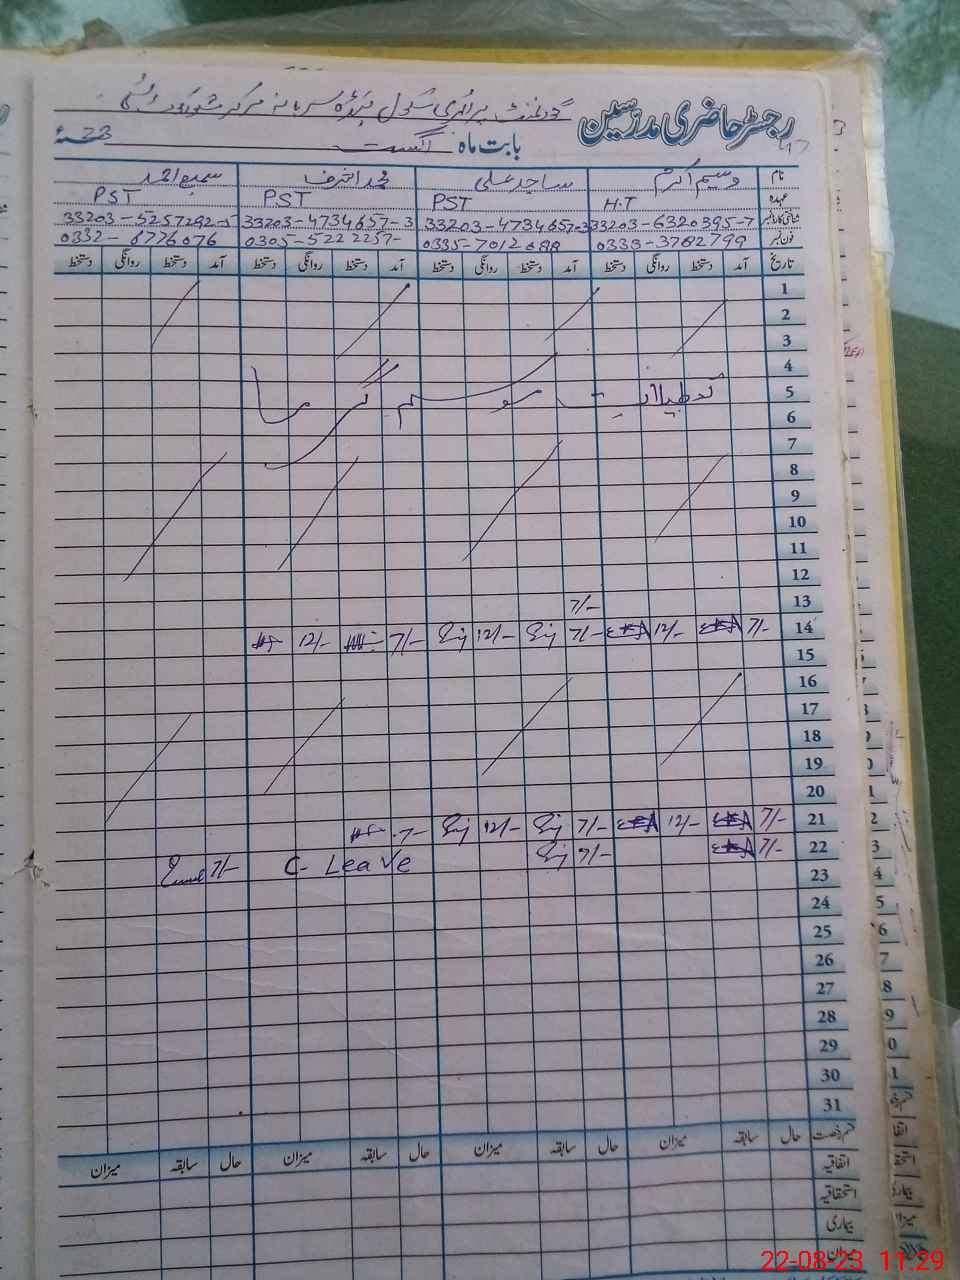 رجسٹر حاضری مدرسین
گورنمنٹ پرائمری سکول
بابت ماہ اگست 23ء
نام وسیم اکرم ساجد علی محمد اشرف سمیع احمد
عہدہ H.T PST PST PST
شناختی کارڈ نمبر 33203-6320395-7 33203-4734657-3 33203-4734657-3 33203-5257292-5
فون نمبر 0333-3782799 0335-7012688 0305-5222257- 0332-8776076
تاریخ آمد دستخط روانگی دستخط آمد دستخط روانگی دستخط آمد دستخط روانگی دستخط آمد دستخط روانگی دستخط
1
2
3
4
5 تعطیلات موسم گرما
6
7
8
9
10
11
12
13 7/-
14 7/- 12/- 7/- 12/- 7/- 12/-
15
16
17
18
19
20
21 7/- 12/- 7/- 12/- 7/-
22 7/- 7/- C-Leave 7/-
23
24
25
26
27
28
29
30
31
قسم رخصت حال سابقہ میزان حال سابقہ میزان حال سابقہ میزان حال سابقہ میزان
اتفاقیہ
استحقاقیہ
بیماری
میزان
22-08-23 11:29